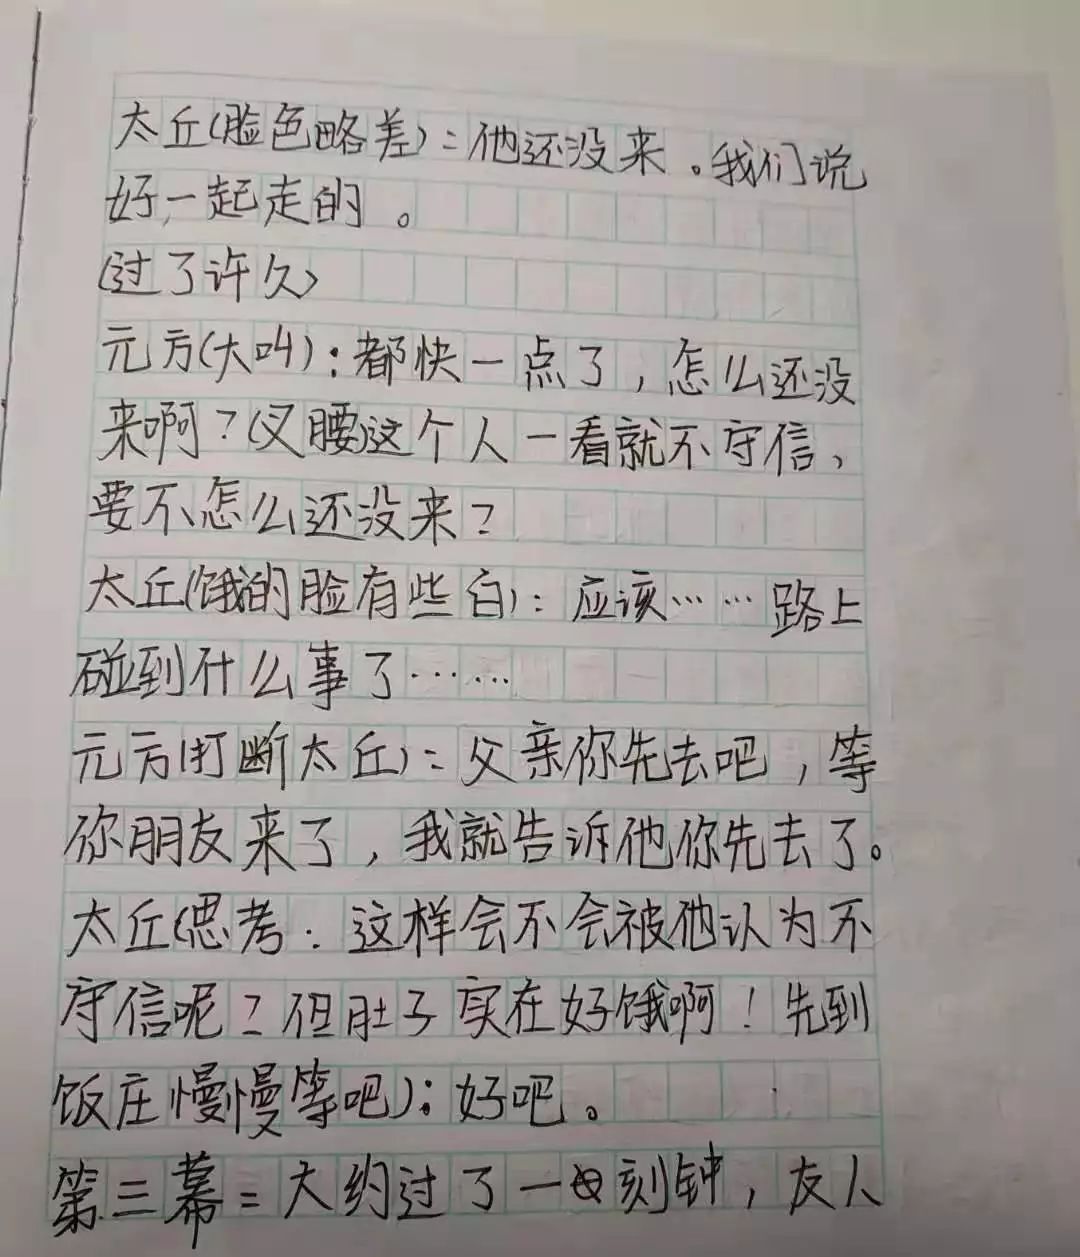 太丘(脸色略差):他还没来。我们说
好一起走的。
(过了许久)
元方(大叫):都快一点了,怎么还没
来啊?(叉腰)这个人一看就不守信,
要不怎么还没来?
太丘(饿的脸有些白):应该……路上
碰到什么事了……
元方(打断太丘):父亲你先去吧,等
你朋友来了,我就告诉他你先去了。
太丘(思考:这样会不会被他认为不
守信呢?但肚子实在好饿啊!先到
饭庄慢慢等吧):好吧。
第三幕:大约过了一刻钟,友人